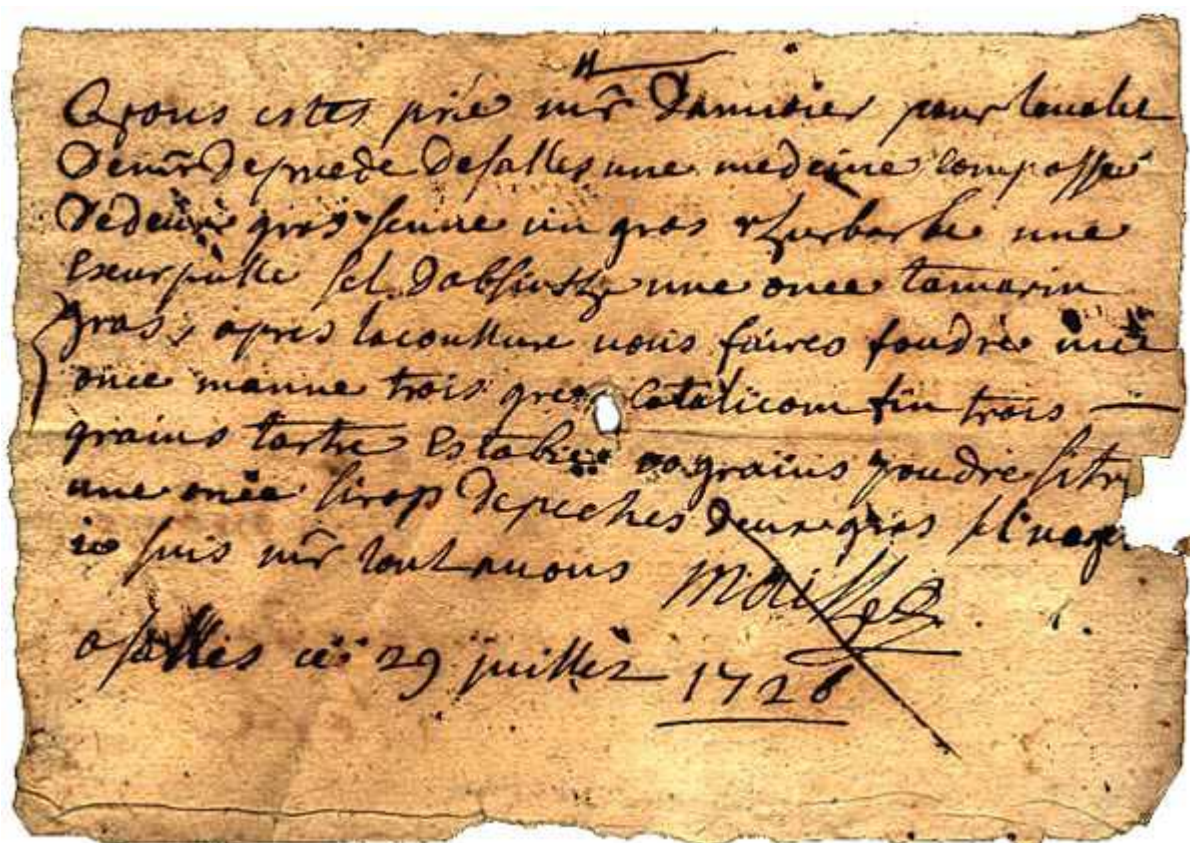 Vous estes prié mr Damusier pour lavalet
Demr Deprede Desalles une medecine composse
Dedeux gros senne un gros rhurbarbe une
sel Dabsinthe une once tamarin
gras, apres lacoulture vous faires foudre une
once manne trois gros Catalicom fin trois
grains tartre grains poudre
une once sirop Depeches Deux gros sel
ie suis mr tout avous
asalles ce 29 juilles 1726